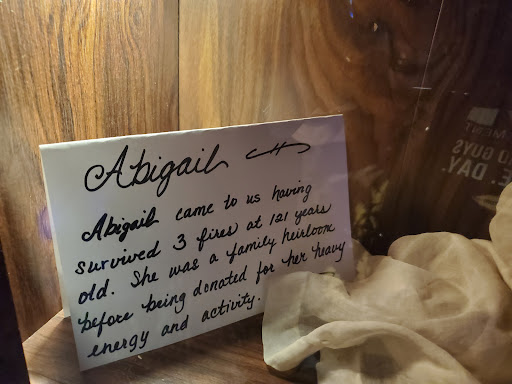 Abigail
Abigail came to us having
survived 3 fires at 121 years
old. She was a family heirloom
before being donated for her heavy
energy and activity.
MENT
O GUYS
E. DAY.